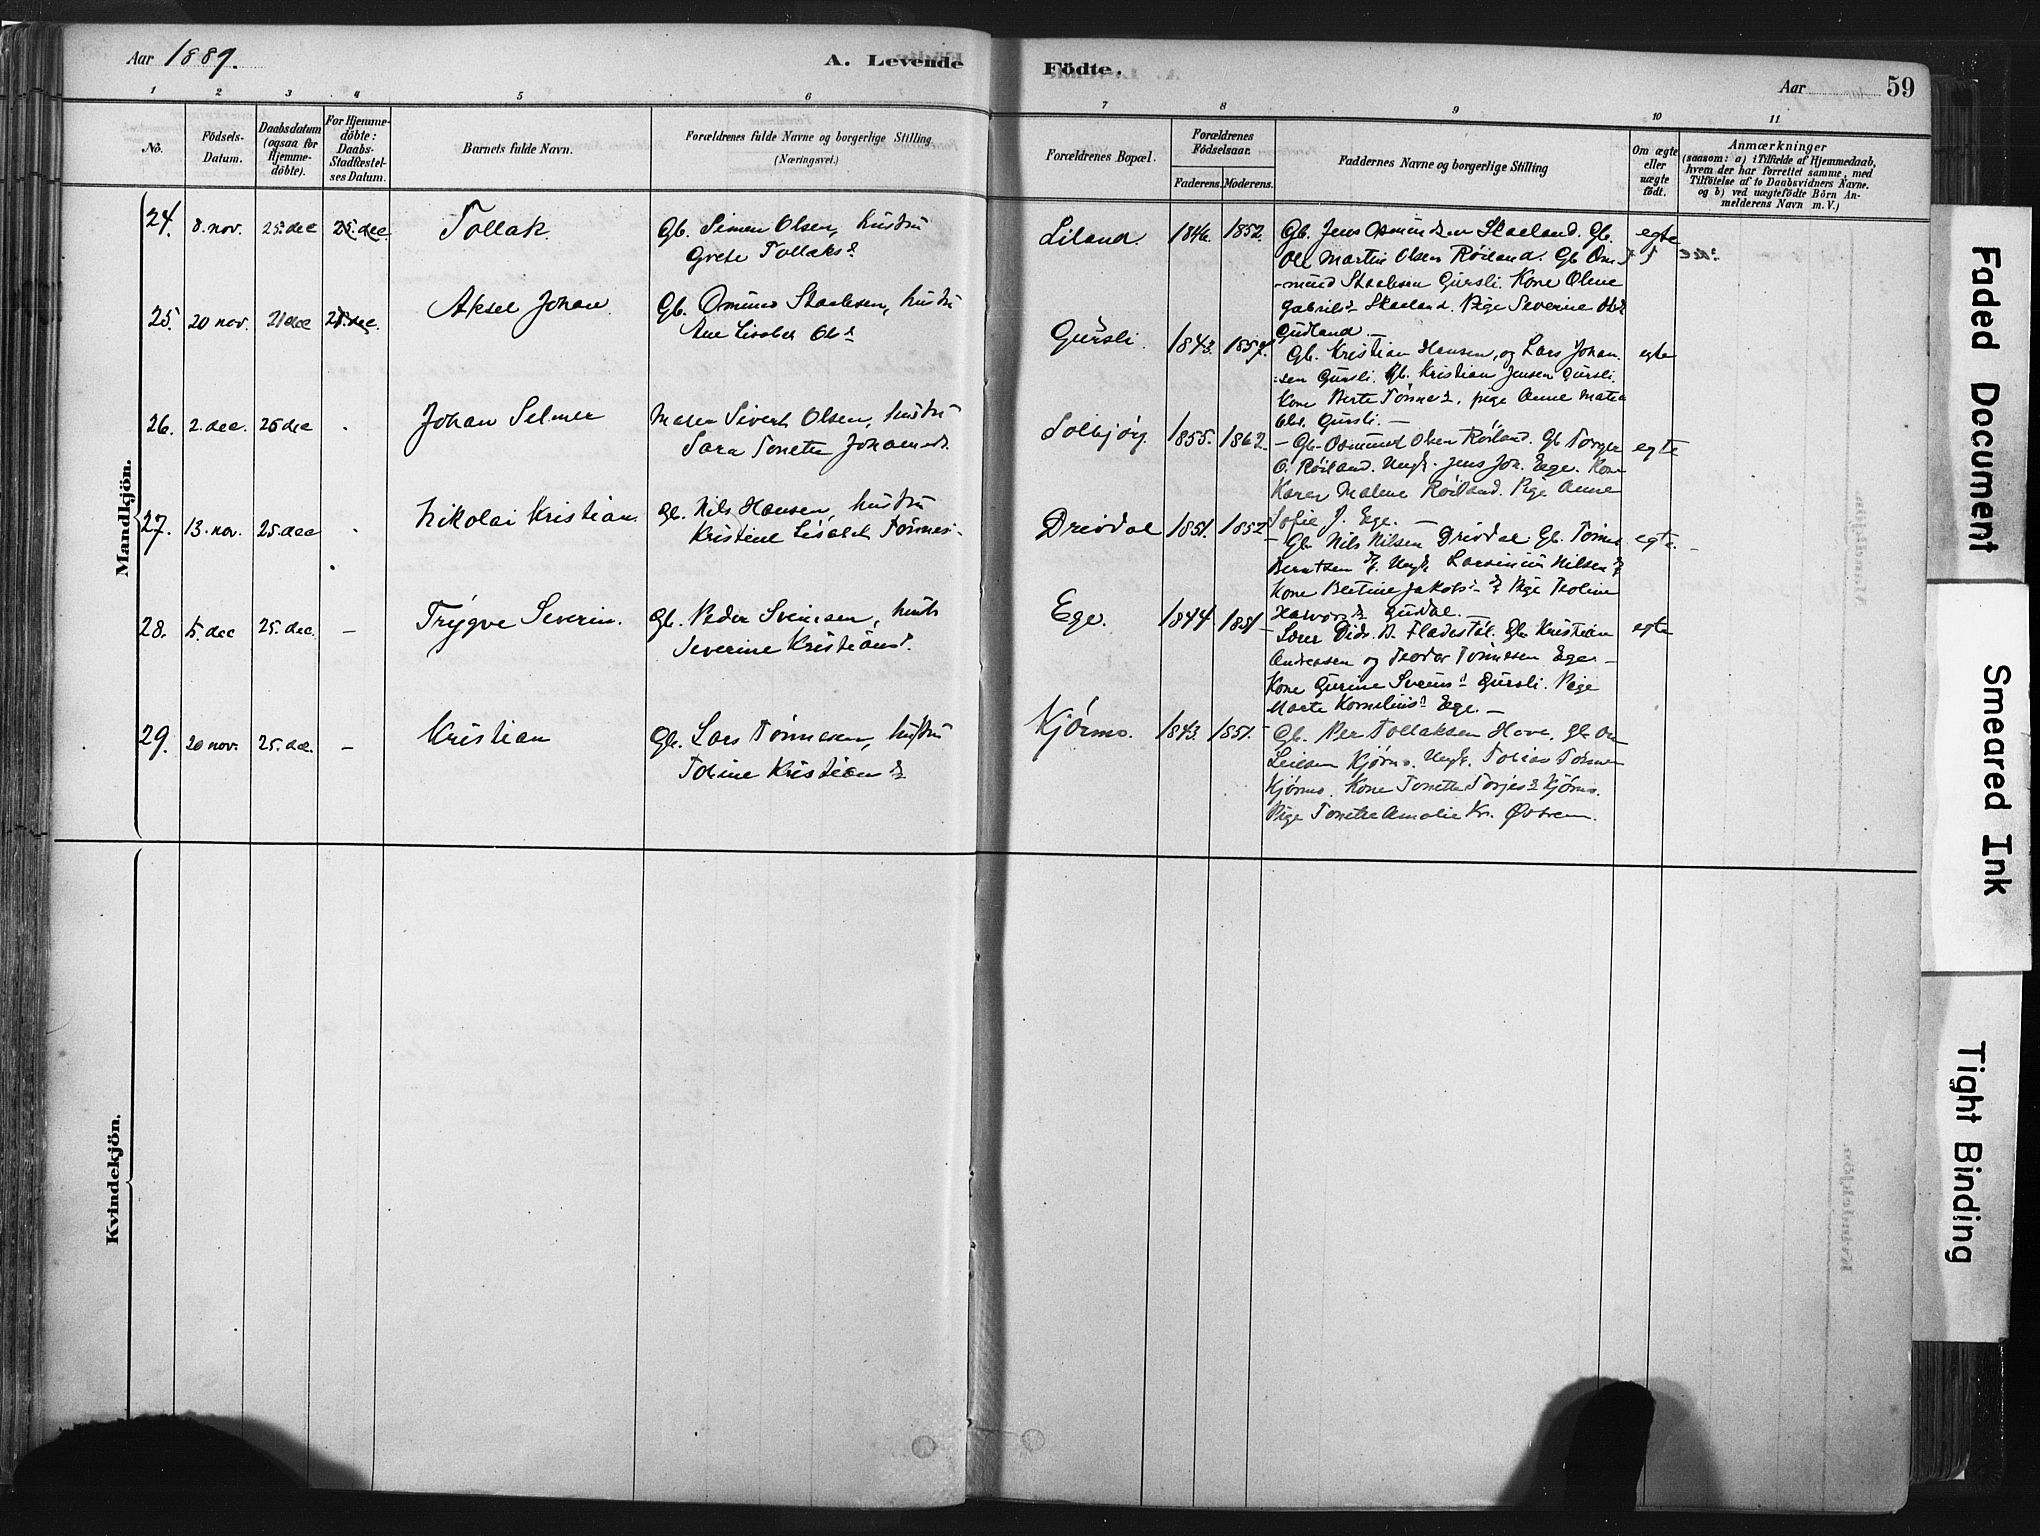 Aar 1889.
A. Levende
Födte.
Aar
59
1 2 3 4 5 6 7 8 9 10 11
No.
Födsels-
Datum.
Daabsdatum
(ogsaa for
Hjemme-
döbte).
For Hjemme-
döbte:
Daabs-
Stadfæstel-
ses Datum.
Barnets fulde Navn.
Forældrenes fulde Navne og borgerlige Stilling
(Næringsvei.)
Forældrenes Bopæl.
Forældrenes
Födselsaar.
Faderens. Moderens.
Faddernes Navne og borgerlige Stilling
Om ægte
eller
uægte
födt.
Anmærkninger
(saasom: a) i Tilfælde af Hjemmedaab,
hvem der har forrettet samme, med
Tilföielse af to Daabsvidners Navne.
og b) ved uægtefödte Börn An-
melderens Navn m. V.)
Mandkjön.
24. 8. nov. 25. dec 25. dec. Tollak. Gb. Simen Olsen, hustru
Grete Tollaks
Liland. 1846. 1852. Gb. Jens Osmundsen Skaeland. Gb. egte
Ole Martin Olsen Röiland. Gb Os-
-mund Staalesen Gursli. Kone Oline
Gabriels Skaeland. Pige Severine
Gudland.
25. 20 nov. 21 dec dec. Aksel Johan Gb. Osmund Staalesen, hustru
Ane Lisabet Ols
Gursli. 1843. 1857. Gb. Kristian Hansen, og Lars Johan- egte
sen Gursli. Gb. Kristian Jensen Gursli.
Kone Berte Tönnes, pige Anne
Gursli.
26. 2. dec. 26 dec Johan Selmer Sivert Olsen, hustru
Sara Tonette
Solbjørg 1855. 1862. Gb. Osmund Olsen Röiland. Gb Torger egte
O. Röiland. Ungk. Jens Joh. Ege. Kone
Karen Malene Röiland. Pige Anne
Sofie J. Ege.
27. 13. nov. 25. dec Nikolai Kristian. Gb. Nils Hansen, hustru
Kristine Lisabet Tönnes
Dreivdal 1851. 1852 Gb. Nils Nilsen Dreivdal Gb. egte.
Berntsen Ungk Nilsen
Kone Bertine Jakobs Pige
28. 5. dec 25. dec. – Trygve Severin. Gb. Peder Svensen, hust
Severine Kristians
Ege. 1844 1851 B. Fladestöl. Gb Kristian egte
Andersen og Teodor Tönnesen Ege
Kone Gurine Svens Gursli. Pige
Marte Kornelius Ege.
29. 20 nov. 25. dec. – Kristian Gb. Lars Tönnesen, hustru
Tobine Kristians
Kjørmo. 1843. 1851. Gb. Per Tollaksen Hove. Gb
Kjørmo. Ungk. Tobias
Kjørmo. Kone Tonette Torjes Kjørmo.
Pige Tonette Amalie Kr.
Kvindekjön.
Faded Document
Smeared Ink
Tight Binding